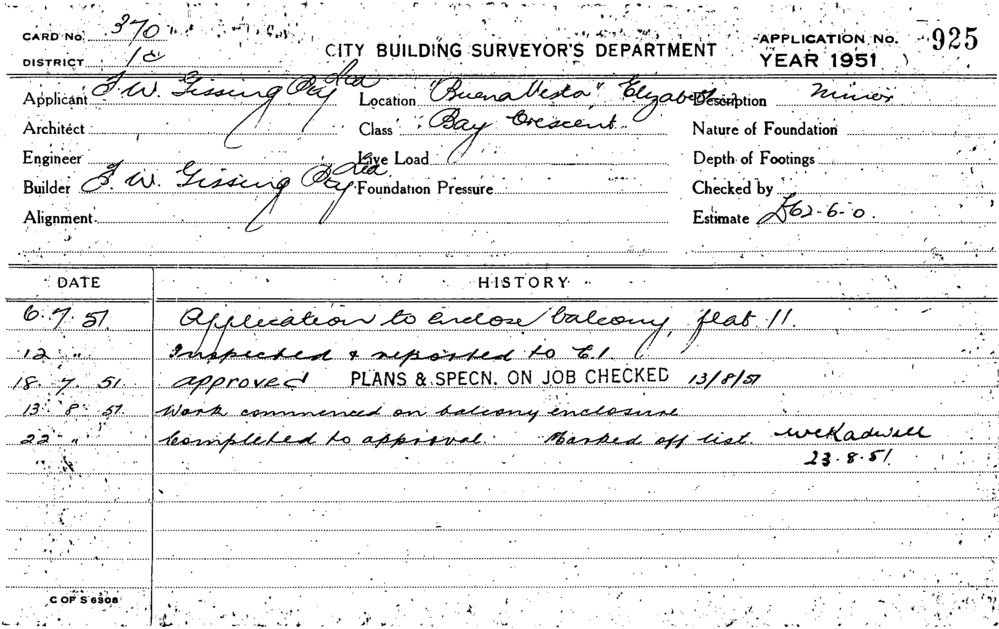 CARD No. 370
DISTRICT 1c
CITY BUILDING SURVEYOR'S DEPARTMENT
APPLICATION No. 925
YEAR 1951
Applicant F. W. Gissing Pty Ltd
Location "Buena Vista" Elizabeth
Description Minor
Architect
Class Bay Crescent
Nature of Foundation
Engineer
Live Load
Depth of Footings
Builder F. W. Gissing Pty Ltd
Foundation Pressure
Checked by
Alignment
Estimate £62-6-0
DATE HISTORY
6.7.51. Application to enclose balcony, flat 11.
12 " Inspected & reported to C.I
18.7.51 approved PLANS & SPECN. ON JOB CHECKED 13/8/51
13.8.51 Work commenced on balcony enclosure
22 " Completed to approval. Marked off list
23.8.51
C OF S 6306